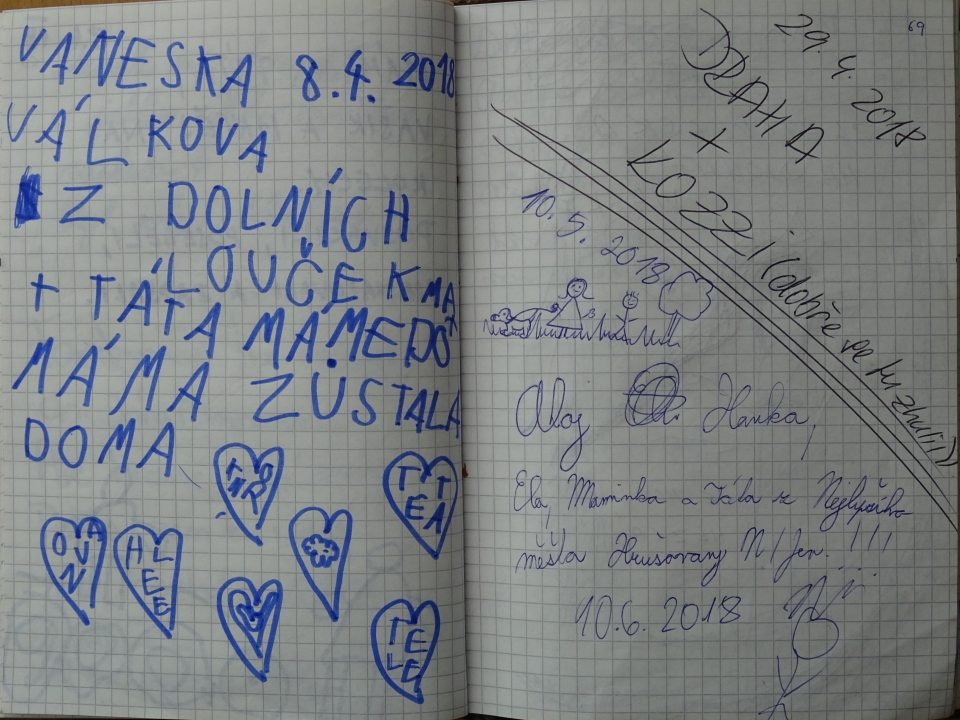 VANESKA 8.4. 2018
VÁLKOVA
Z DOLNÍCH
LOUČEK
+ TÁTA MÁMEDŠ
MÁMA ZŮSTALA
DOMA
TETA
OVA
HLEE
TELE
69
29. 4. 2018
DRAHA
+
KOZZI (dobře se tu zhulil)
10. 5. 2018
Ahoj Hanka,
Ela, Maminka a Táta z Nejlepšího
města Hrušovany N/Jev. !!!
10.6.2018